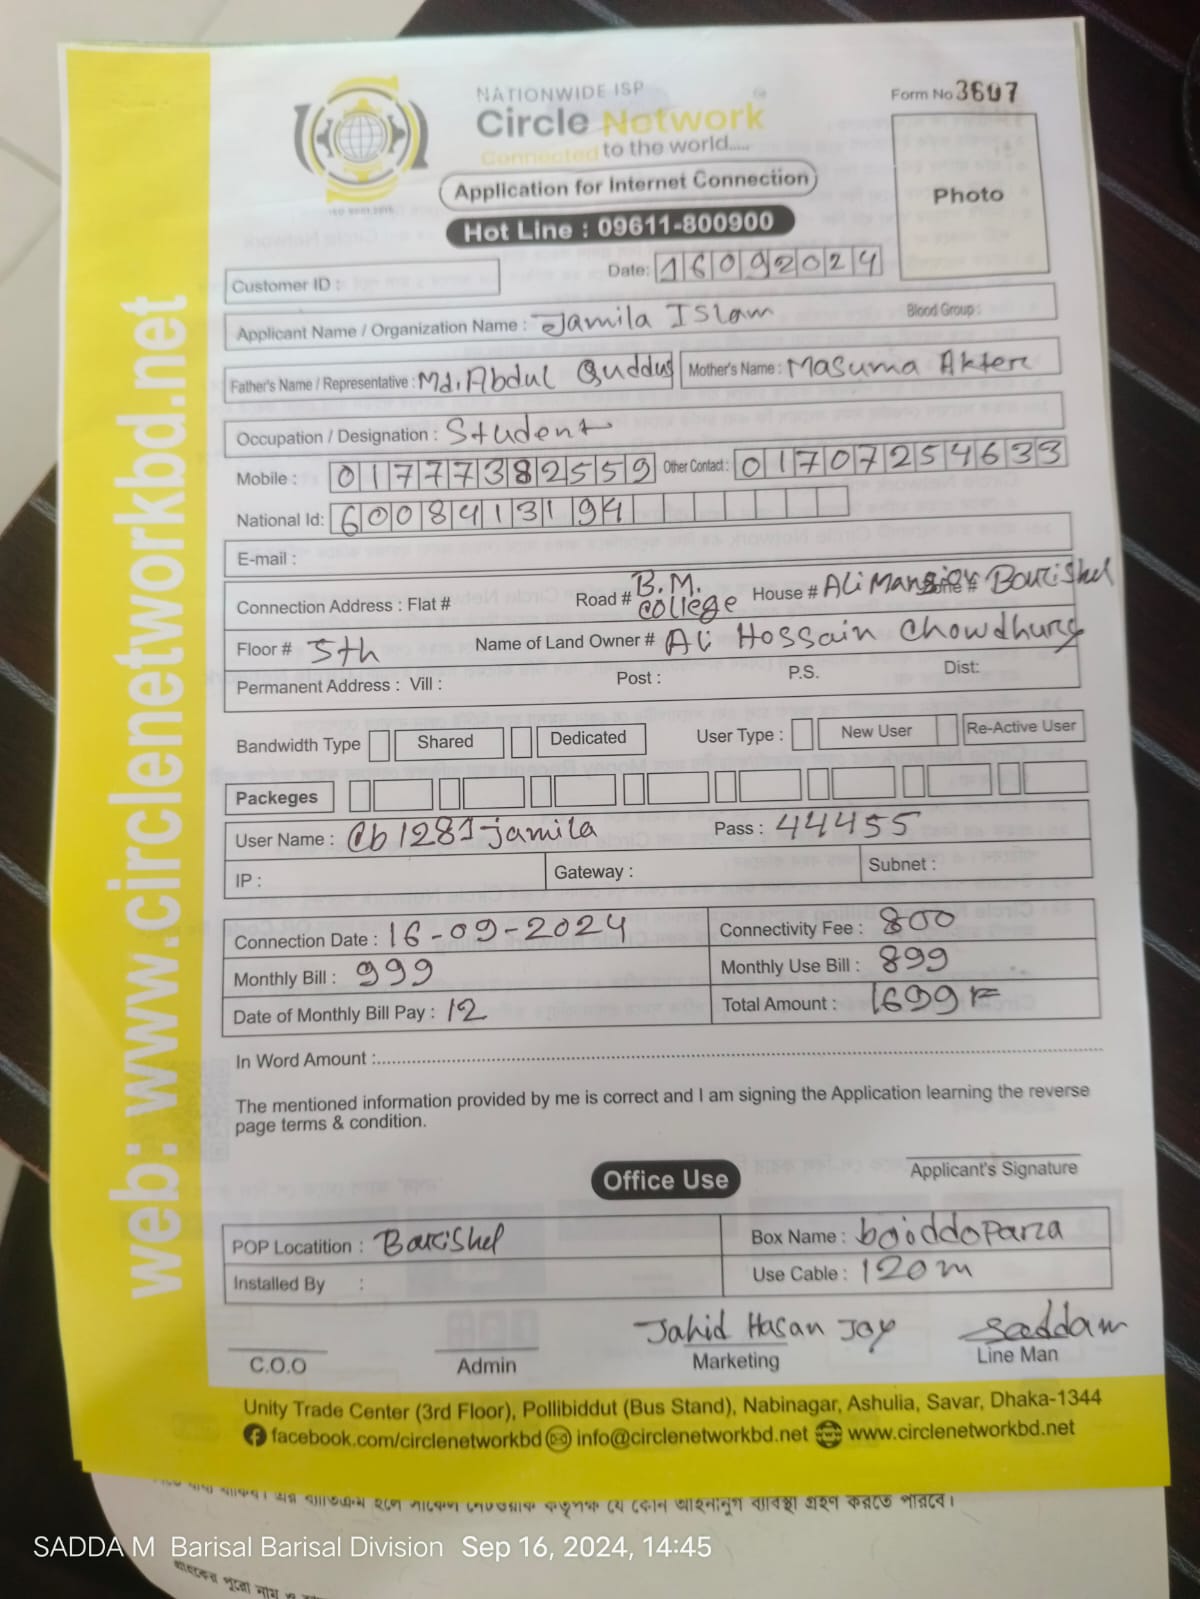 NATIONWIDE ISP
Circle Network
Connected to the world.....
Form No 3607
Application for Internet Connection
Hot Line : 09611-800900
Photo
Customer ID :
Date: 16092024
Applicant Name / Organization Name : Jamila Islam Blood Group :
Father's Name / Representative : Md. Abdul Quddus Mother's Name : Masuma Akter
Occupation / Designation : Student
Mobile : 01777382559 Other Contact : 01707254633
National Id: 6008413194
E-mail :
Connection Address : Flat # Road # B.M. College House # Ali Mansion Zone # Barishal
Floor # 5th Name of Land Owner # Ali Hossain Chowdhury
Permanent Address : Vill : Post : P.S. Dist:
Bandwidth Type Shared Dedicated User Type : New User Re-Active User
Packeges
User Name : Cb1281jamila Pass : 44455
IP : Gateway : Subnet :
Connection Date : 16-09-2024 Connectivity Fee : 800
Monthly Bill : 999 Monthly Use Bill : 899
Date of Monthly Bill Pay : 12 Total Amount : 1699
In Word Amount :
The mentioned information provided by me is correct and I am signing the Application learning the reverse
page terms & condition.
Applicant's Signature
Office Use
POP Locatition : Barishal Box Name : boiddopara
Installed By : Use Cable : 120m
Jahid Hasan Joy Saddam
C.O.O Admin Marketing Line Man
Unity Trade Center (3rd Floor), Pollibiddut (Bus Stand), Nabinagar, Ashulia, Savar, Dhaka-1344
facebook.com/circlenetworkbd info@circlenetworkbd.net www.circlenetworkbd.net
web: www.circlenetworkbd.net
SADDA M Barisal Barisal Division Sep 16, 2024, 14:45